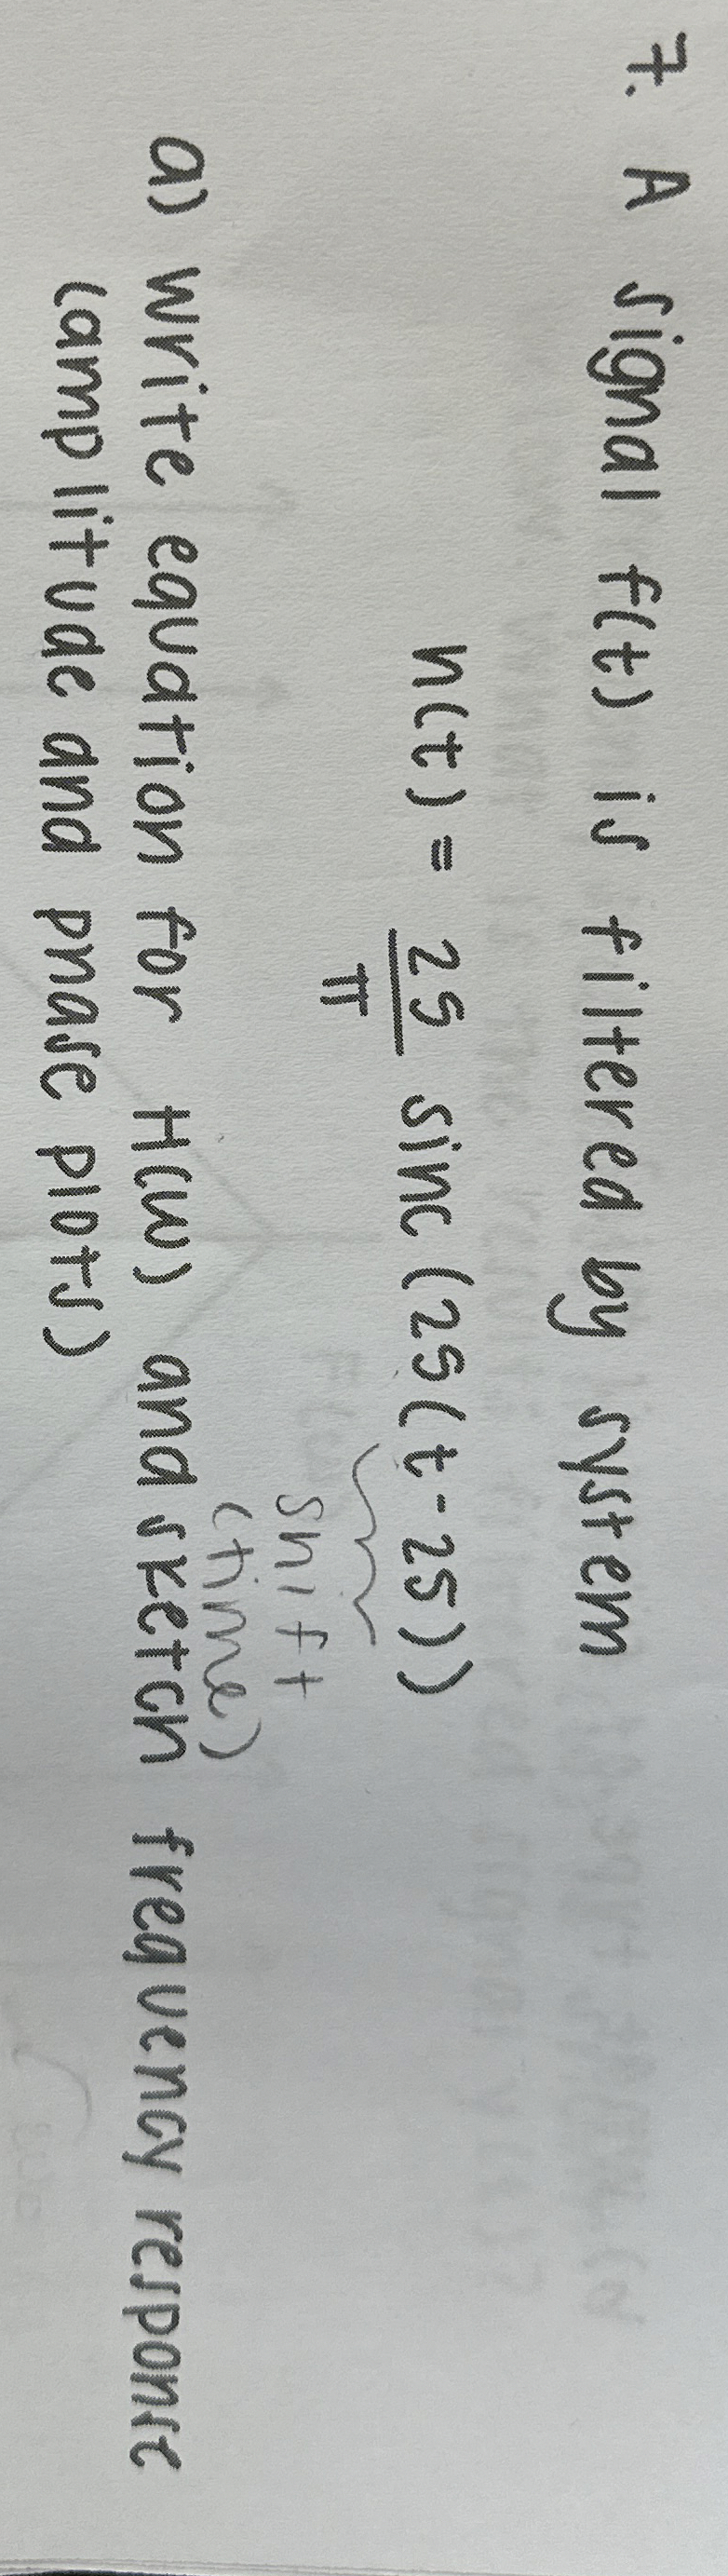 7. A signal f(t) is filtered by system
h(t) = 25/π sinc (25(t-25))
shift
(time)
a) write equation for H(w) and sketch frequency response
(amplitude and phase plots)